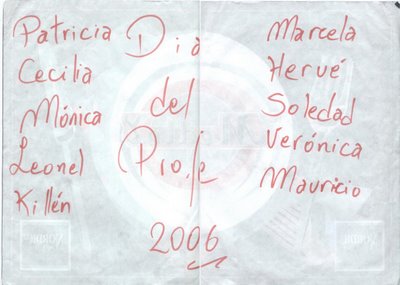 Patricia
Cecilia
Mónica
Leonel
Killén
Día
del
Profe
2006
Marcela
Hervé
Soledad
Verónica
Mauricio